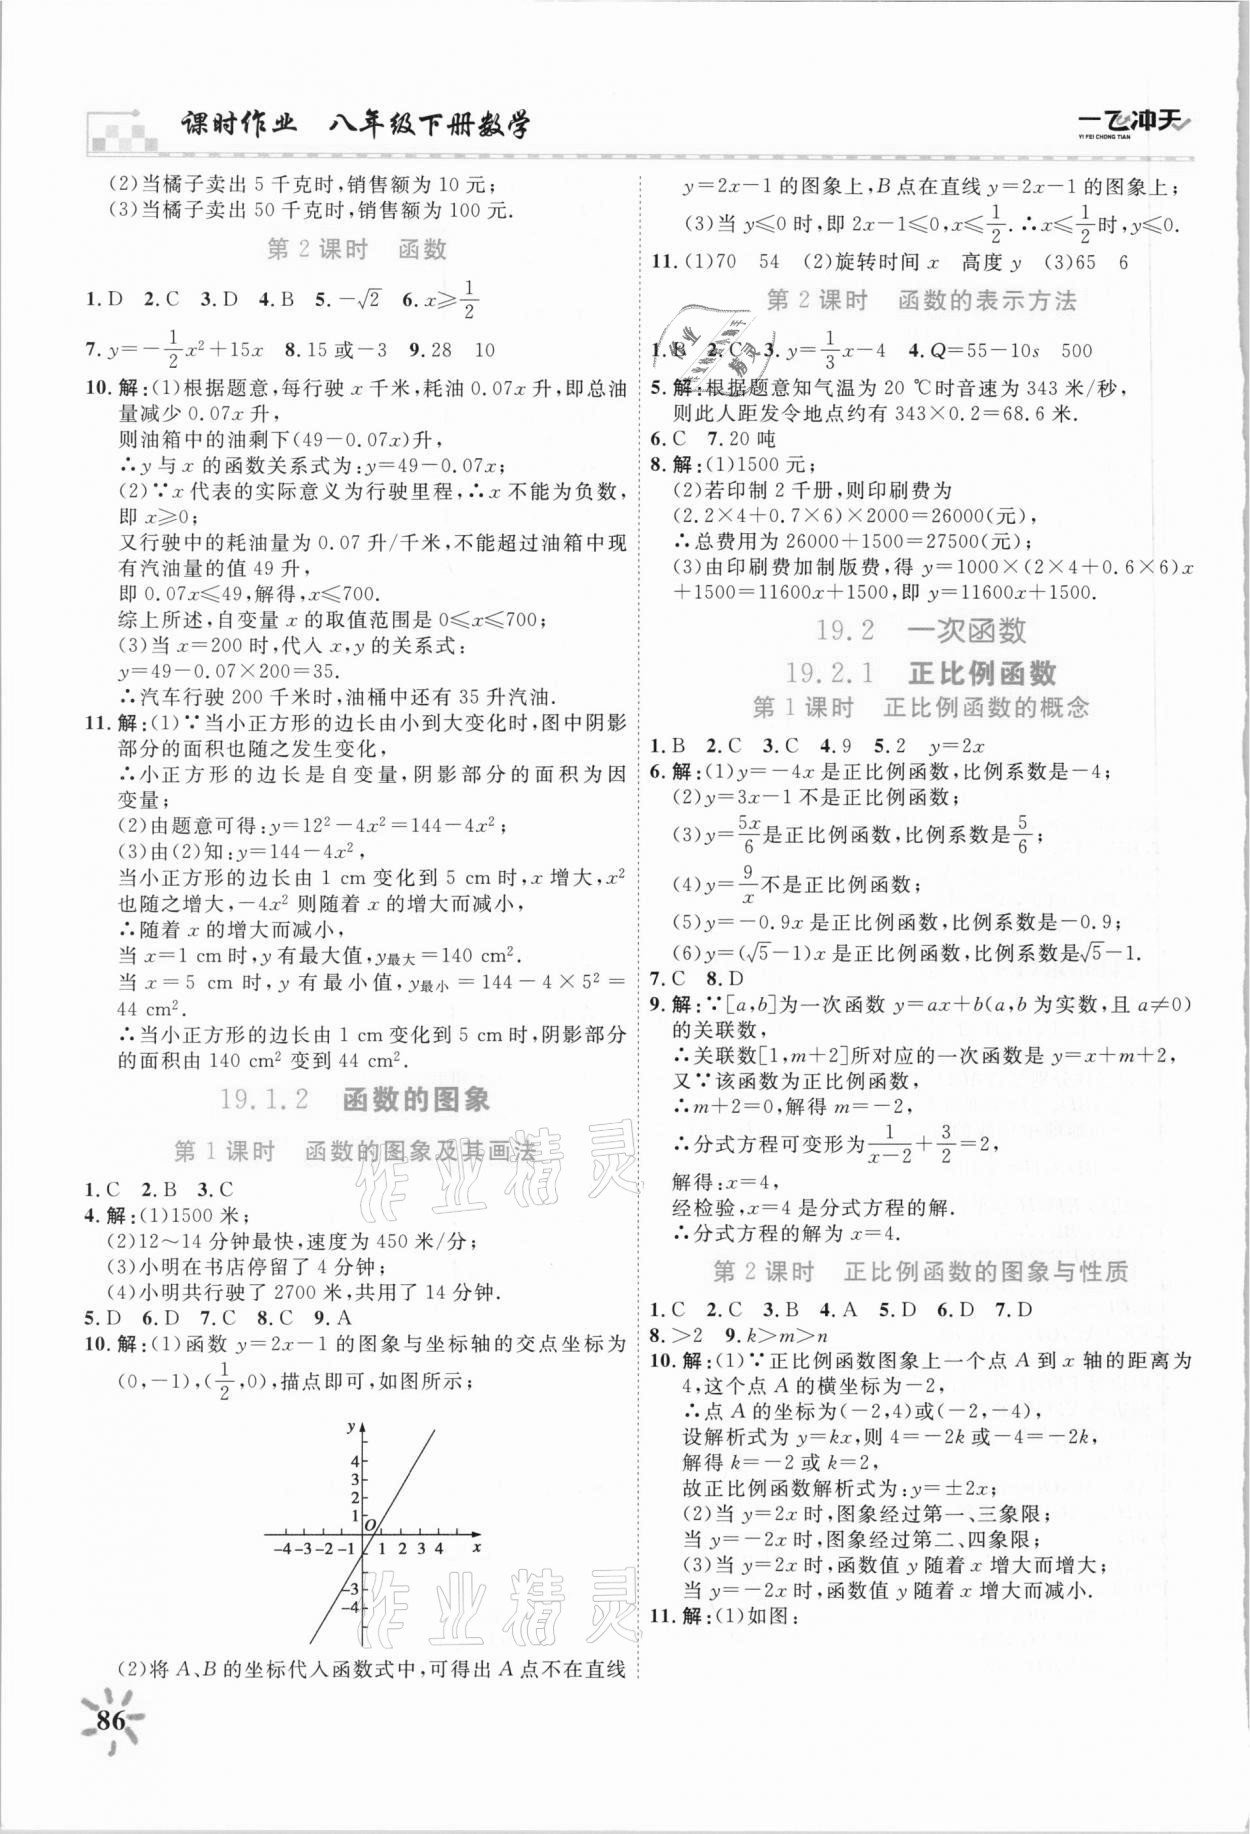 课时作业 八年级下册数学
一飞冲天
YI FEI CHONG TIAN
(2)当橘子卖出 5 千克时,销售额为 10 元;
(3)当橘子卖出 50 千克时,销售额为 100 元.
第 2 课时 函数
1. D 2. C 3. D 4. B 5. -√2 6. x≥1/2
7. y=-1/2x²+15x 8. 15 或-3 9. 28 10
10. 解:(1)根据题意,每行驶 x 千米,耗油 0.07x 升,即总油
量减少 0.07x 升,
则油箱中的油剩下(49-0.07x)升,
∴y 与 x 的函数关系式为:y=49-0.07x;
(2)∵x 代表的实际意义为行驶里程,∴x 不能为负数,
即 x≥0;
又行驶中的耗油量为 0.07 升/千米,不能超过油箱中现
有汽油量的值 49 升,
即 0.07x≤49,解得,x≤700.
综上所述,自变量 x 的取值范围是 0≤x≤700;
(3)当 x=200 时,代入 x,y 的关系式:
y=49-0.07×200=35.
∴汽车行驶 200 千米时,油桶中还有 35 升汽油.
11. 解:(1)∵当小正方形的边长由小到大变化时,图中阴影
部分的面积也随之发生变化,
∴小正方形的边长是自变量,阴影部分的面积为因
变量;
(2)由题意可得:y=12²-4x²=144-4x²;
(3)由(2)知:y=144-4x²,
当小正方形的边长由 1 cm 变化到 5 cm 时,x 增大,x²
也随之增大,-4x² 则随着 x 的增大而减小,
∴随着 x 的增大而减小,
当 x=1 cm 时,y 有最大值,y最大=140 cm².
当 x=5 cm 时,y 有最小值,y最小=144-4×5²=
44 cm².
∴当小正方形的边长由 1 cm 变化到 5 cm 时,阴影部分
的面积由 140 cm² 变到 44 cm².
19.1.2 函数的图象
第 1 课时 函数的图象及其画法
1. C 2. B 3. C
4. 解:(1)1500 米;
(2)12～14 分钟最快,速度为 450 米/分;
(3)小明在书店停留了 4 分钟;
(4)小明共行驶了 2700 米,共用了 14 分钟.
5. D 6. D 7. C 8. C 9. A
10. 解:(1)函数 y=2x-1 的图象与坐标轴的交点坐标为
(0,-1),(1/2,0),描点即可,如图所示;
y
4
3
2
1
O
-4 -3 -2 -1 1 2 3 4 x
-3
-4
(2)将 A、B 的坐标代入函数式中,可得出 A 点不在直线
86
y=2x-1 的图象上,B 点在直线 y=2x-1 的图象上;
(3)当 y≤0 时,即 2x-1≤0,x≤1/2.∴x≤1/2时,y≤0.
11. (1)70 54 (2)旋转时间 x 高度 y (3)65 6
第 2 课时 函数的表示方法
1. B 2. C 3. y=1/3x-4 4. Q=55-10s 500
5. 解:根据题意知气温为 20 ℃时音速为 343 米/秒,
则此人距发令地点约有 343×0.2=68.6 米.
6. C 7. 20 吨
8. 解:(1)1500 元;
(2)若印制 2 千册,则印刷费为
(2.2×4+0.7×6)×2000=26000(元),
∴总费用为 26000+1500=27500(元);
(3)由印刷费加制版费,得 y=1000×(2×4+0.6×6)x
+1500=11600x+1500,即 y=11600x+1500.
19.2 一次函数
19.2.1 正比例函数
第 1 课时 正比例函数的概念
1. B 2. C 3. C 4. 9 5. 2 y=2x
6. 解:(1)y=-4x 是正比例函数,比例系数是-4;
(2)y=3x-1 不是正比例函数;
(3)y=5x/6是正比例函数,比例系数是5/6;
(4)y=9/x不是正比例函数;
(5)y=-0.9x 是正比例函数,比例系数是-0.9;
(6)y=(√5-1)x 是正比例函数,比例系数是√5-1.
7. C 8. D
9. 解:∵[a,b]为一次函数 y=ax+b(a,b 为实数,且 a≠0)
的关联数,
∴关联数[1,m+2]所对应的一次函数是 y=x+m+2,
又∵该函数为正比例函数,
∴m+2=0,解得 m=-2,
∴分式方程可变形为1/(x-2)+3/2=2,
解得:x=4,
经检验,x=4 是分式方程的解.
∴分式方程的解为 x=4.
第 2 课时 正比例函数的图象与性质
1. C 2. C 3. B 4. A 5. D 6. D 7. D
8. >2 9. k>m>n
10. 解:(1)∵正比例函数图象上一个点 A 到 x 轴的距离为
4,这个点 A 的横坐标为-2,
∴点 A 的坐标为(-2,4)或(-2,-4),
设解析式为 y=kx,则 4=-2k 或-4=-2k,
解得 k=-2 或 k=2,
故正比例函数解析式为:y=±2x;
(2)当 y=2x 时,图象经过第一、三象限;
当 y=-2x 时,图象经过第二、四象限;
(3)当 y=2x 时,函数值 y 随着 x 增大而增大;
当 y=-2x 时,函数值 y 随着 x 增大而减小.
11. 解:(1)如图:
作业精灵
作业精灵